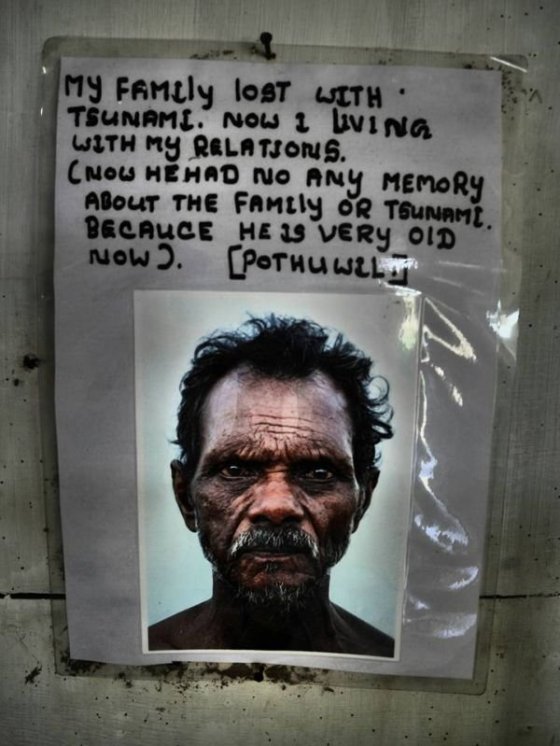 MY FAMILY LOST WITH
TSUNAMI. NOW I LIVING
WITH MY RELATIONS.
(NOW HE HAD NO ANY MEMORY
ABOUT THE FAMILY OR TSUNAMI.
BECAUCE HE IS VERY OLD
NOW). [POTHUWIL.]